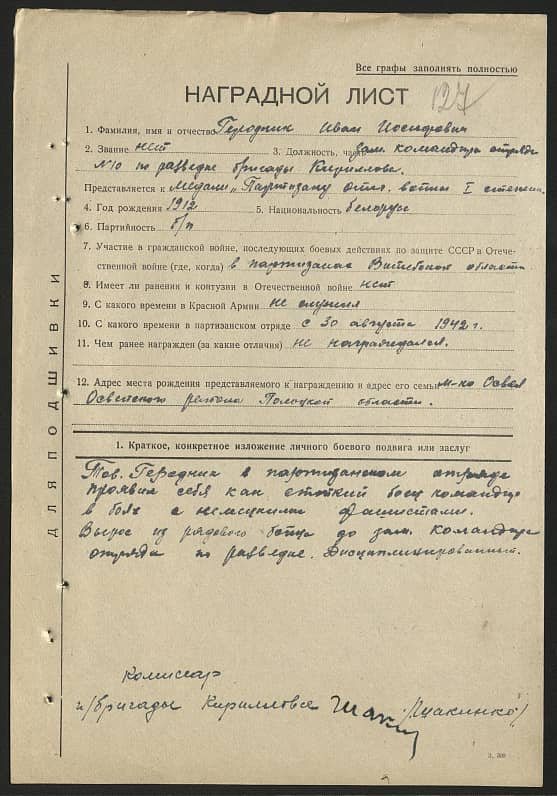 Все графы заполнять полностью
НАГРАДНОЙ ЛИСТ 127
1. Фамилия, имя и отчество Геродник Иван Иосифович
2. Звание нет 3. Должность, часть зам. командира отряда
№10 по разведке бригады Кириллова.
Представляется к медали „Партизану отеч. войны I степени.
4. Год рождения 1912 5. Национальность белорус
6. Партийность б/п
7. Участие в гражданской войне, последующих боевых действиях по защите СССР в Отече-
ственной войне (где, когда) в партизанах Витебской области
8. Имеет ли ранения и контузии в Отечественной войне нет
9. С какого времени в Красной Армии не служил
10. С какого времени в партизанском отряде с 30 августа 1942 г.
11. Чем ранее награжден (за какие отличия) не награждался.
12. Адрес места рождения представляемого к награждению и адрес его семьи м-ко Освея
Освейского района Полоцкой области.
1. Краткое, конкретное изложение личного боевого подвига или заслуг
Тов. Геродник в партизанском отряде
проявил себя как стойкий боец командир
в боях с немецкими фашистами.
Вырос из рядового бойца до зам. командира
отряда по разведке. Дисциплинированный.
Комиссар
п/бригады Кириллова
ДЛЯ ПОДШИВКИ